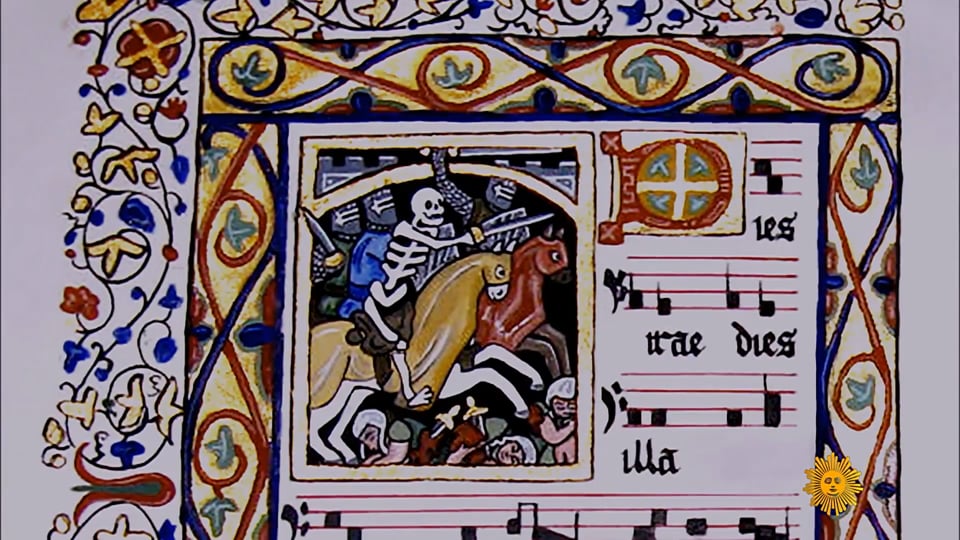 Dies
irae dies
illa